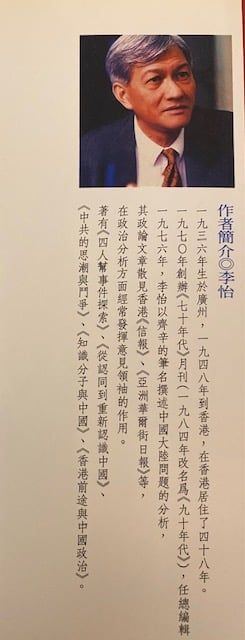 作者簡介◎李怡
一九三六年生於廣州，一九四八年到香港，在香港居住了四十八年。
一九七○年創辦《七十年代》月刊（一九八四年改名爲《九十年代》），任總編輯
一九七六年，李怡以齊辛的筆名撰述中國大陸問題的分析，
其政論文章散見香港《信報》、《亞洲華爾街日報》等，
在政治分析方面經常發揮意見領袖的作用。
著有《四人幫事件探索》、《從認同到重新認識中國》、
《中共的思潮與鬥爭》、《知識分子與中國》、《香港前途與中國政治》。